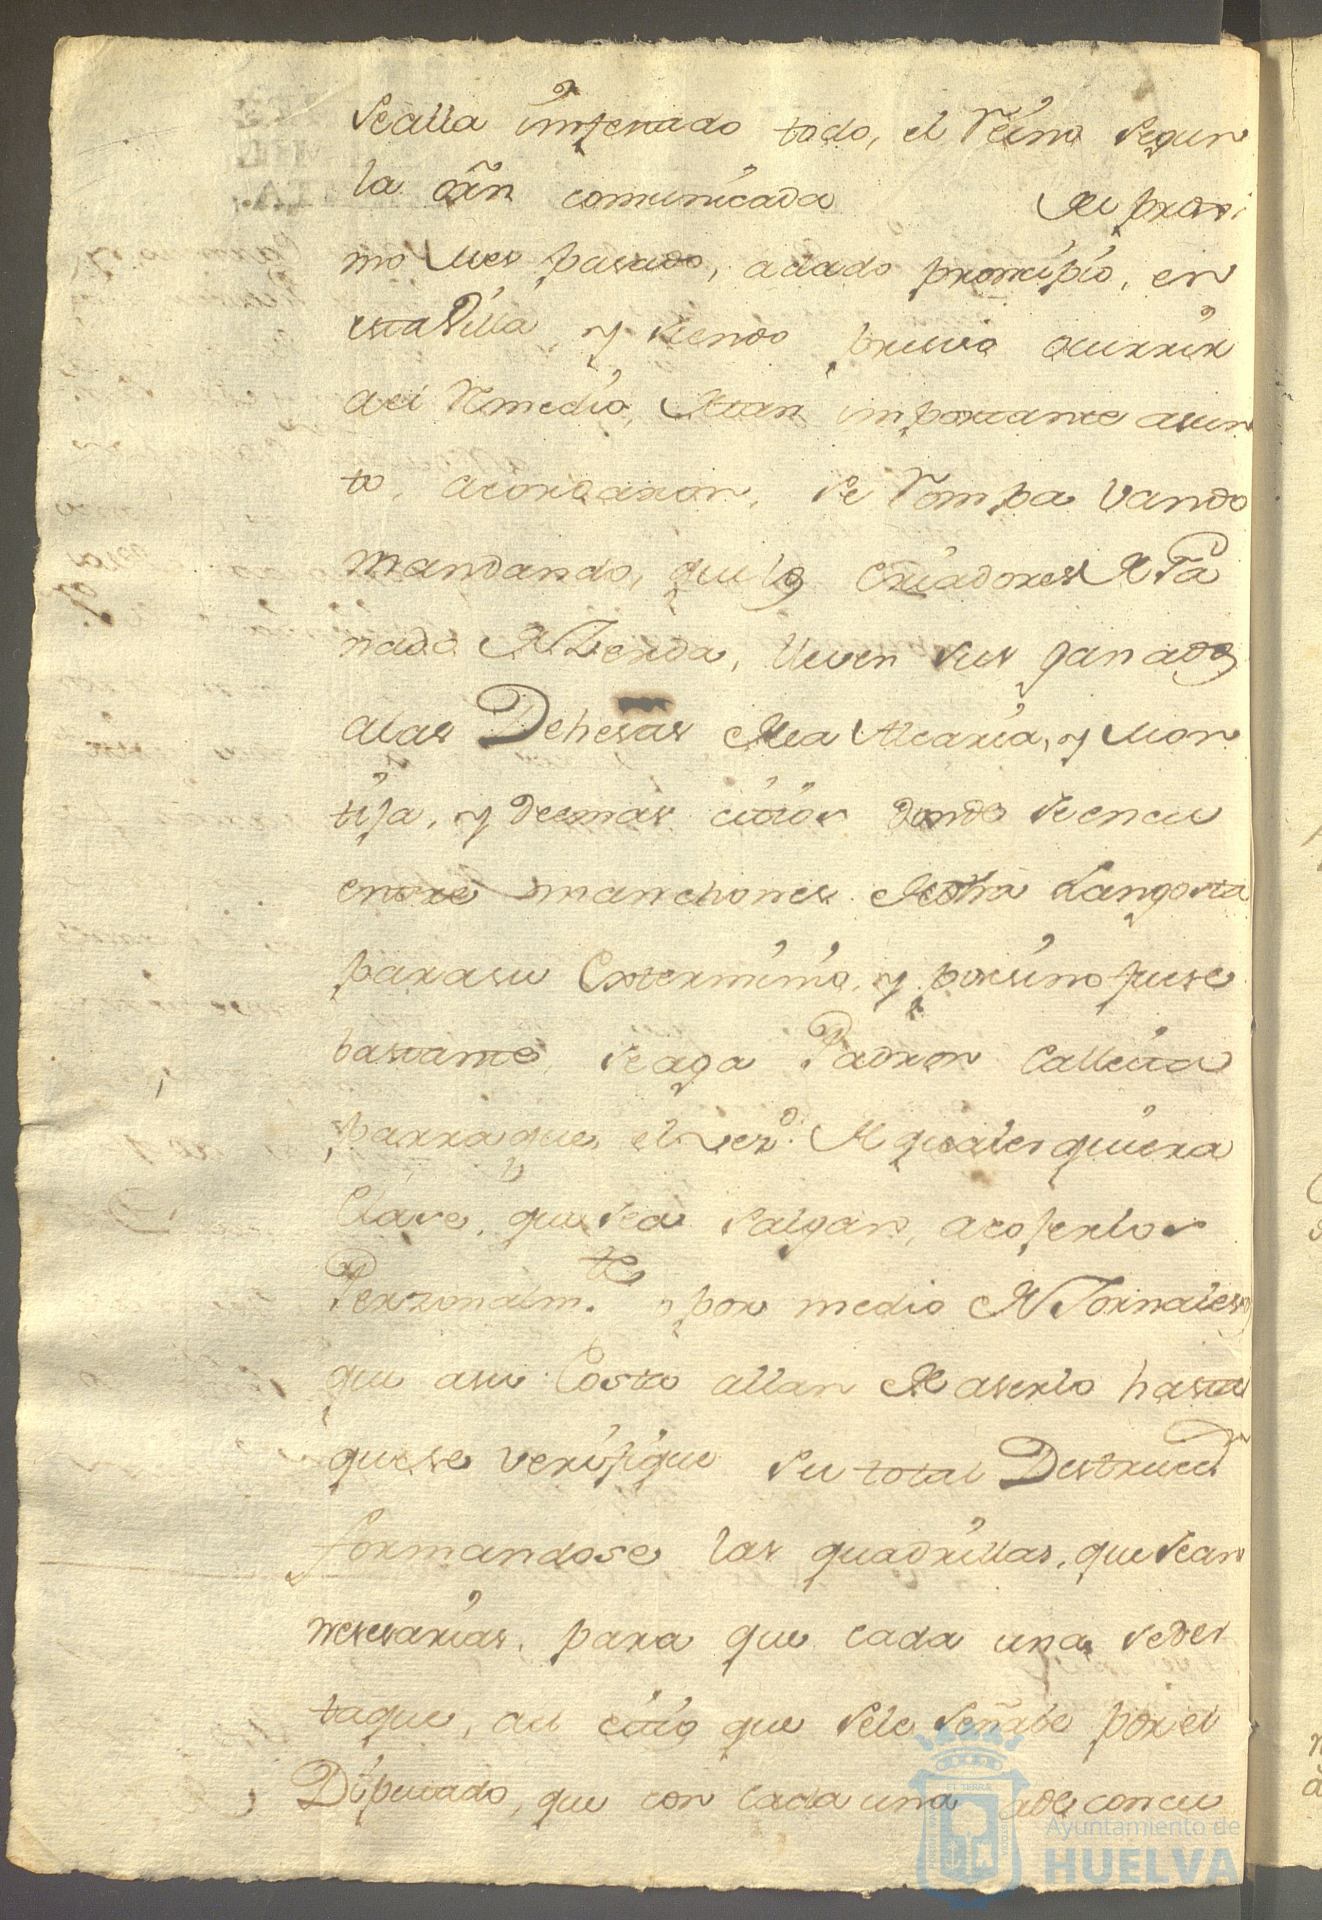 sealla imfertado todo, el Reino segun
la orñ comunicada del proxi
mo Mes pasado, adado prorncipio, en
esta Villa, y siendo presiso ocurrir
ael Remedio, de tan importante asun
to, acordaron, se Rompa Vando
mandando, que los Criadores de Ga
nado de Zerda, lleven sus ganados
alas Dehesas de la Alcaria, y Mon
tija, y demas citios donde se encu
entre manchones de otra Langosta
parasu Exterminio, y porsino fuese
bastante, se aga Padron Calleita
parraque, el vezo. de qualesquiera
Clase, que sea salgan, acojerlos
Perzonalmte. y por medio de Jornales,
que asu Costa allan de aserlo hasta
que se verifique su total Destrucn
formandose las quadrillas, que sean
nesesarias, para que cada una sedes
taque, ael citio que sele señale por el
Diputado, que con cada una ade concu
EL TERRA
Ayuntamiento de
HUELVA